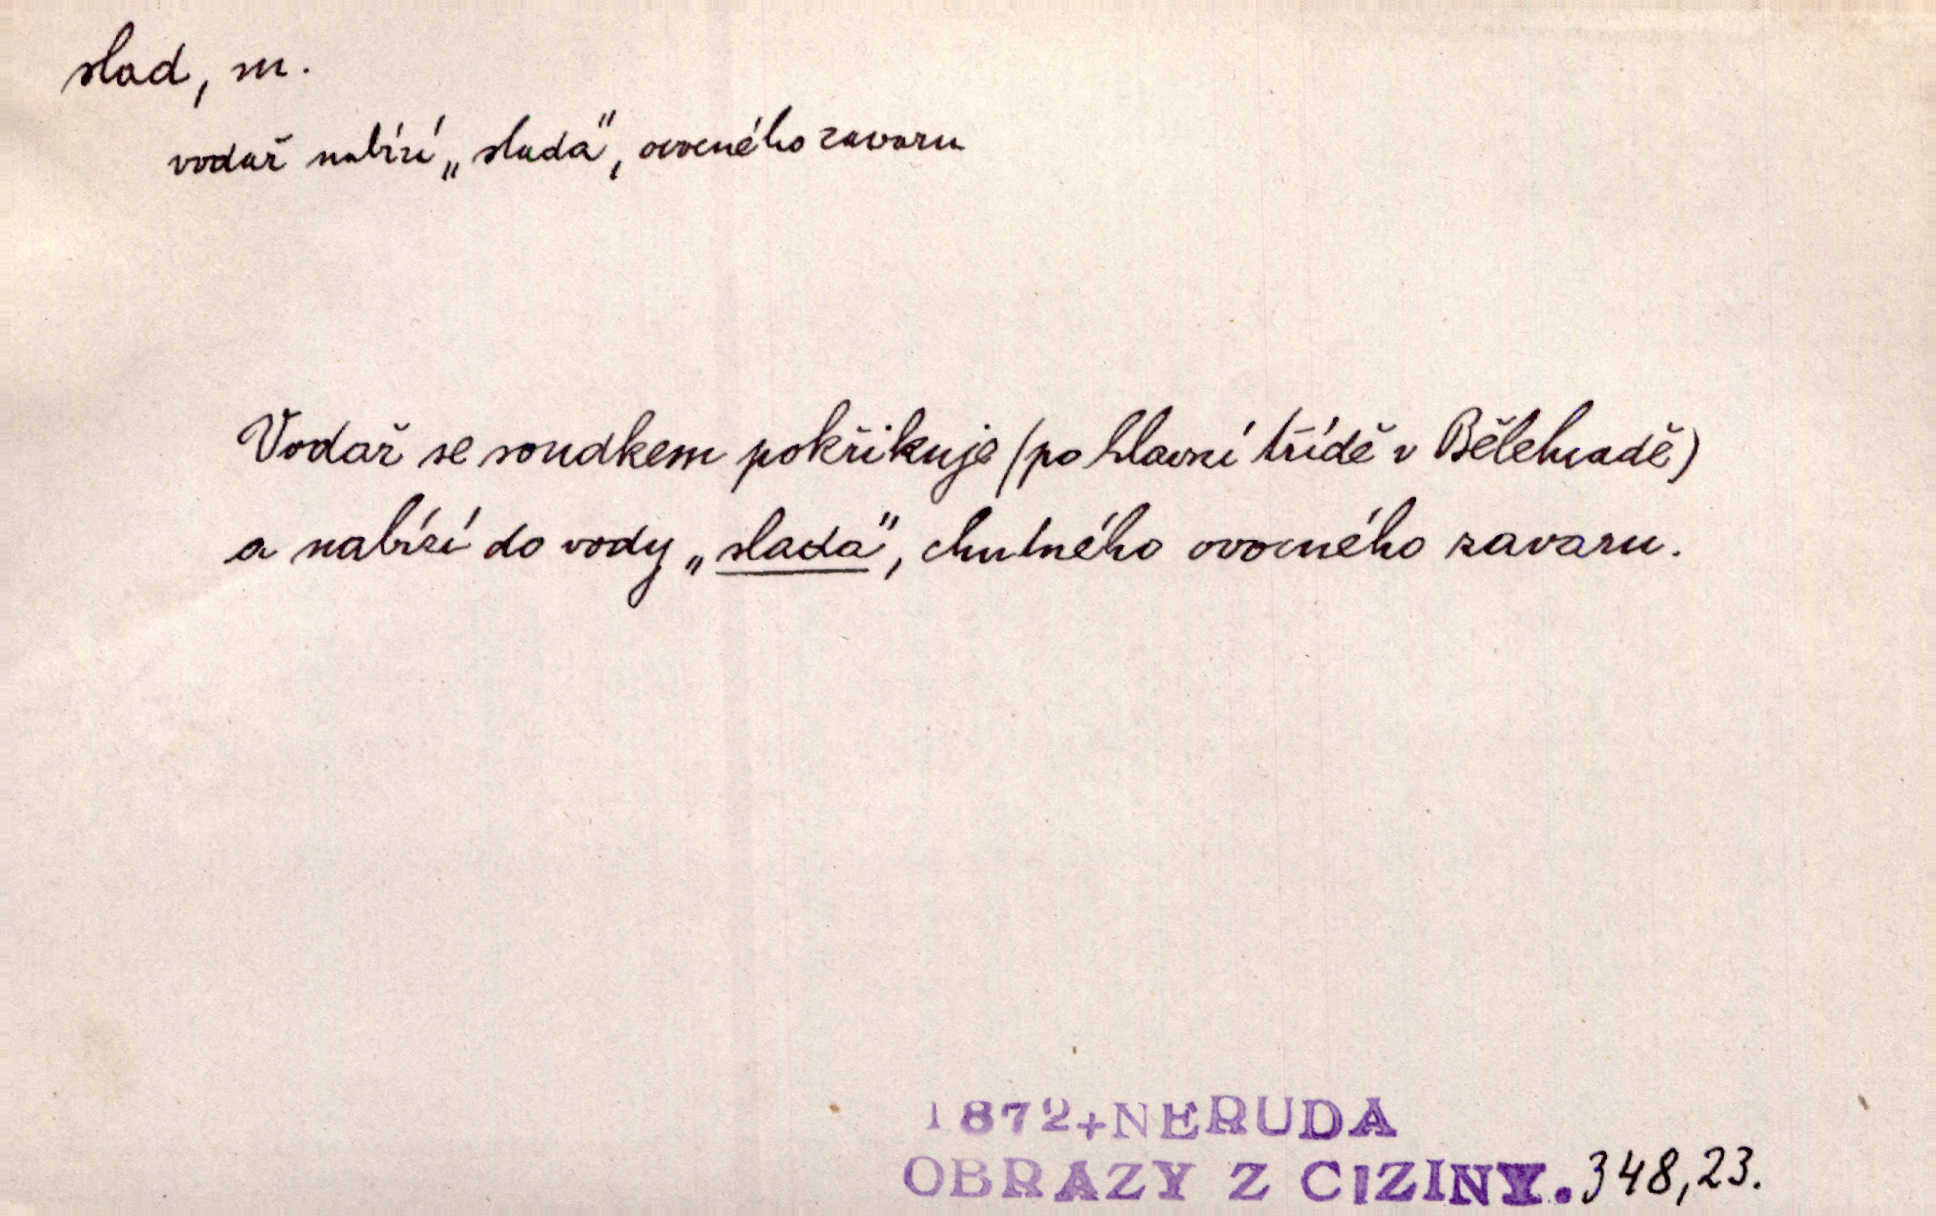 slad, m.
vodař nabízí „slada“, ovocného zavaru
Vodař se soudkem pokřikuje (po hlavní třídě v Bělehradě)
a nabízí do vody „slada“, chutného ovocného zavaru.
1872+NERUDA
OBRAZY Z CIZINY. 348,23.